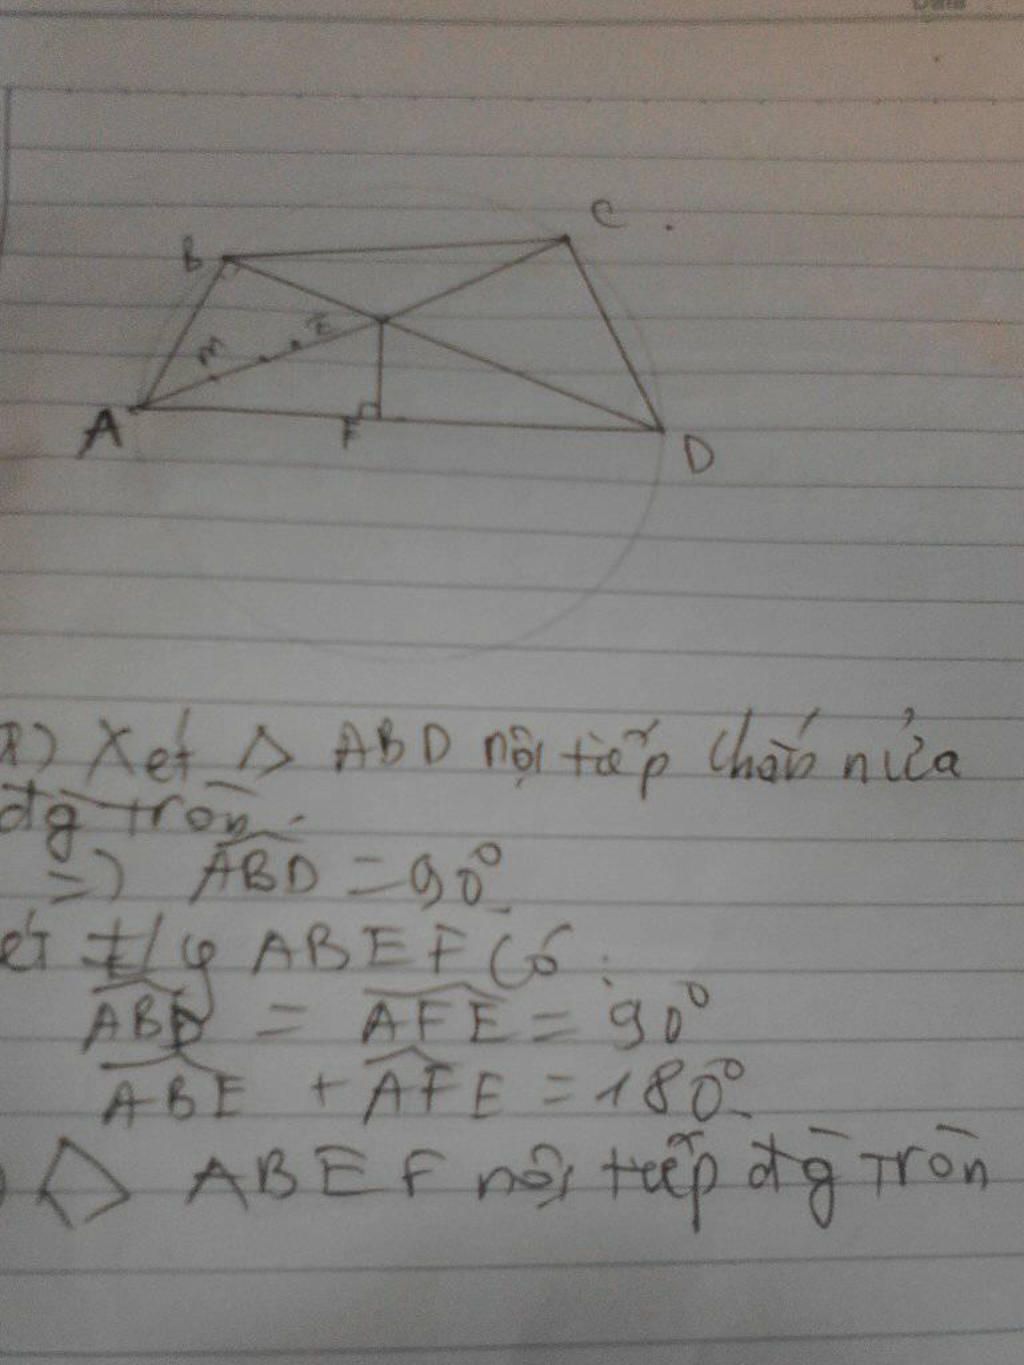 B
C
M
E
A
F
D
a) Xét Δ ABD nội tiếp chắn nửa
đg tròn.
=> ABD = 90°
ét t/g ABEF có :
ABE = AFE = 90°
ABE + AFE = 180°
ABEF nội tiếp đg tròn